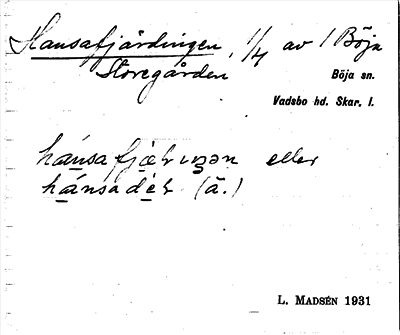 Hansafjärdingen, 1/4 av 1 Böja
Storegården,
Böja sn.
Vadsbo hd. Skar. l.
hánsa fjæ̀rɩŋən eller
hánsa dé̱r (ä.)
L. MADSÉN 1931